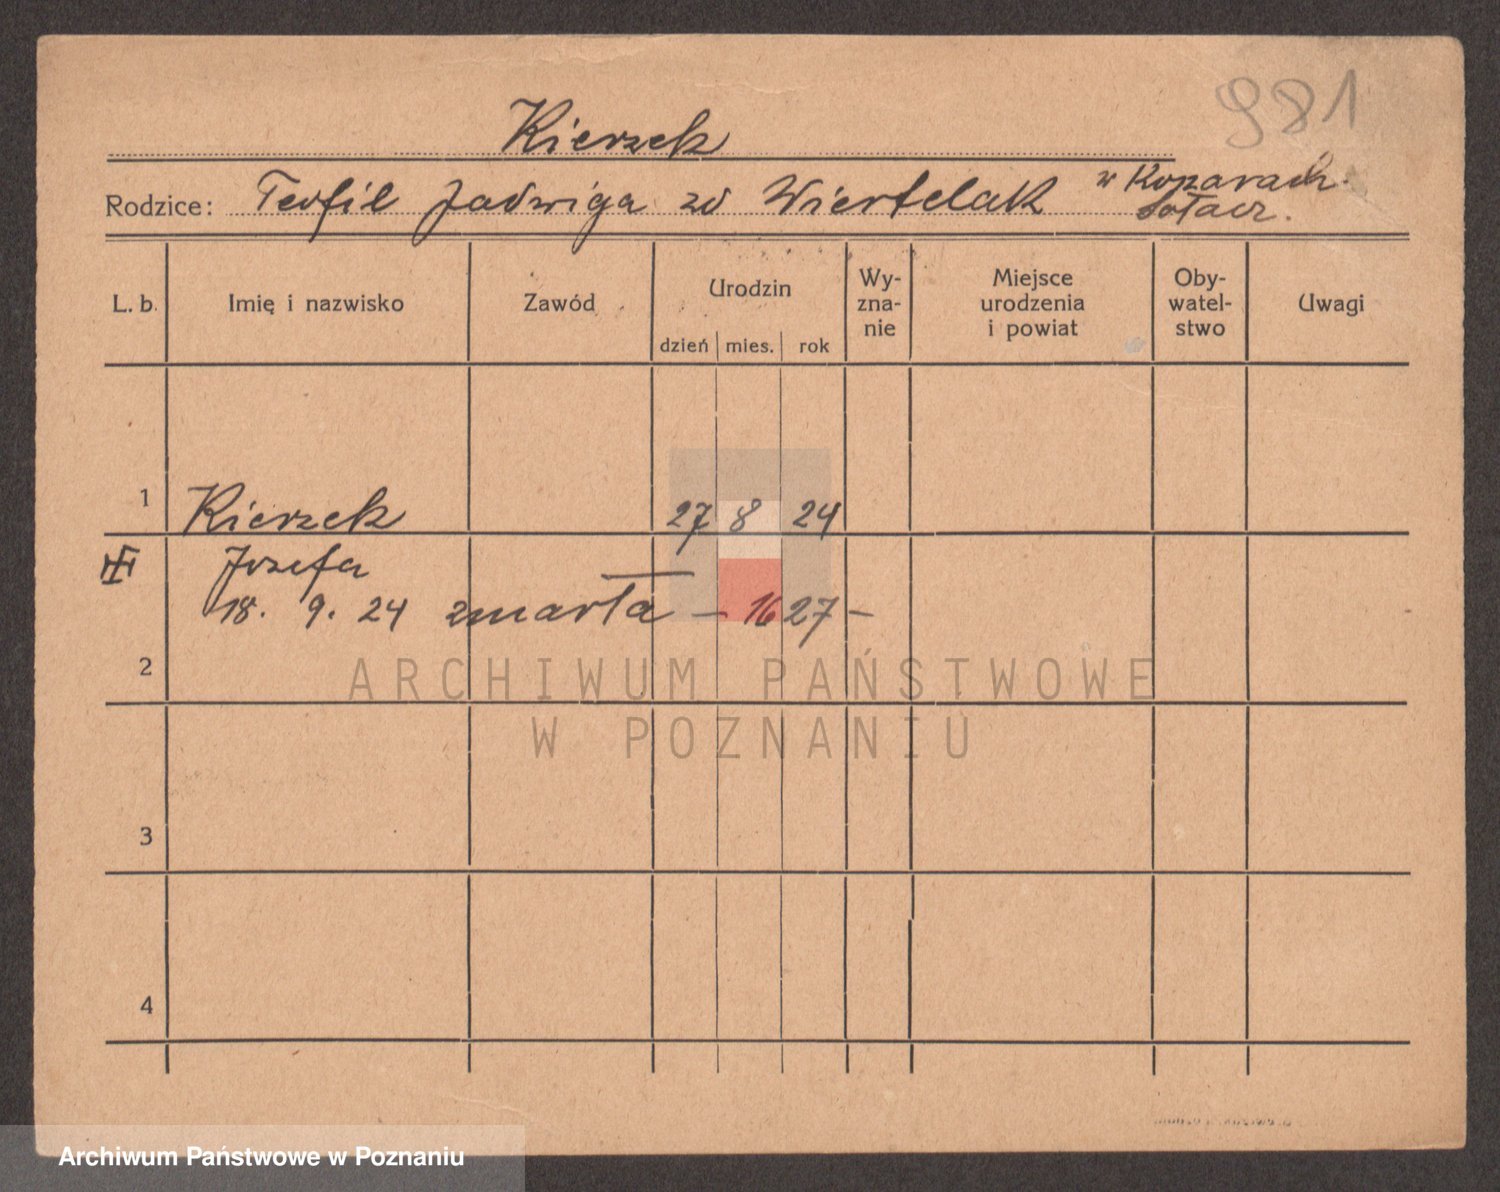 981
Kierzek
Rodzice: Teofil Jadwiga zd Wiertelak w Koszarach
Sołacz.
L. b. Imię i nazwisko Zawód Urodzin dzień mies. rok Wy-zna-nie Miejsce urodzenia i powiat Oby-watel-stwo Uwagi
1 Kierzek 27 8 24
Józefa
18. 9. 24 zmarła – 1627 –
2
ARCHIWUM PAŃSTWOWE
W POZNANIU
3
4
Archiwum Państwowe w Poznaniu